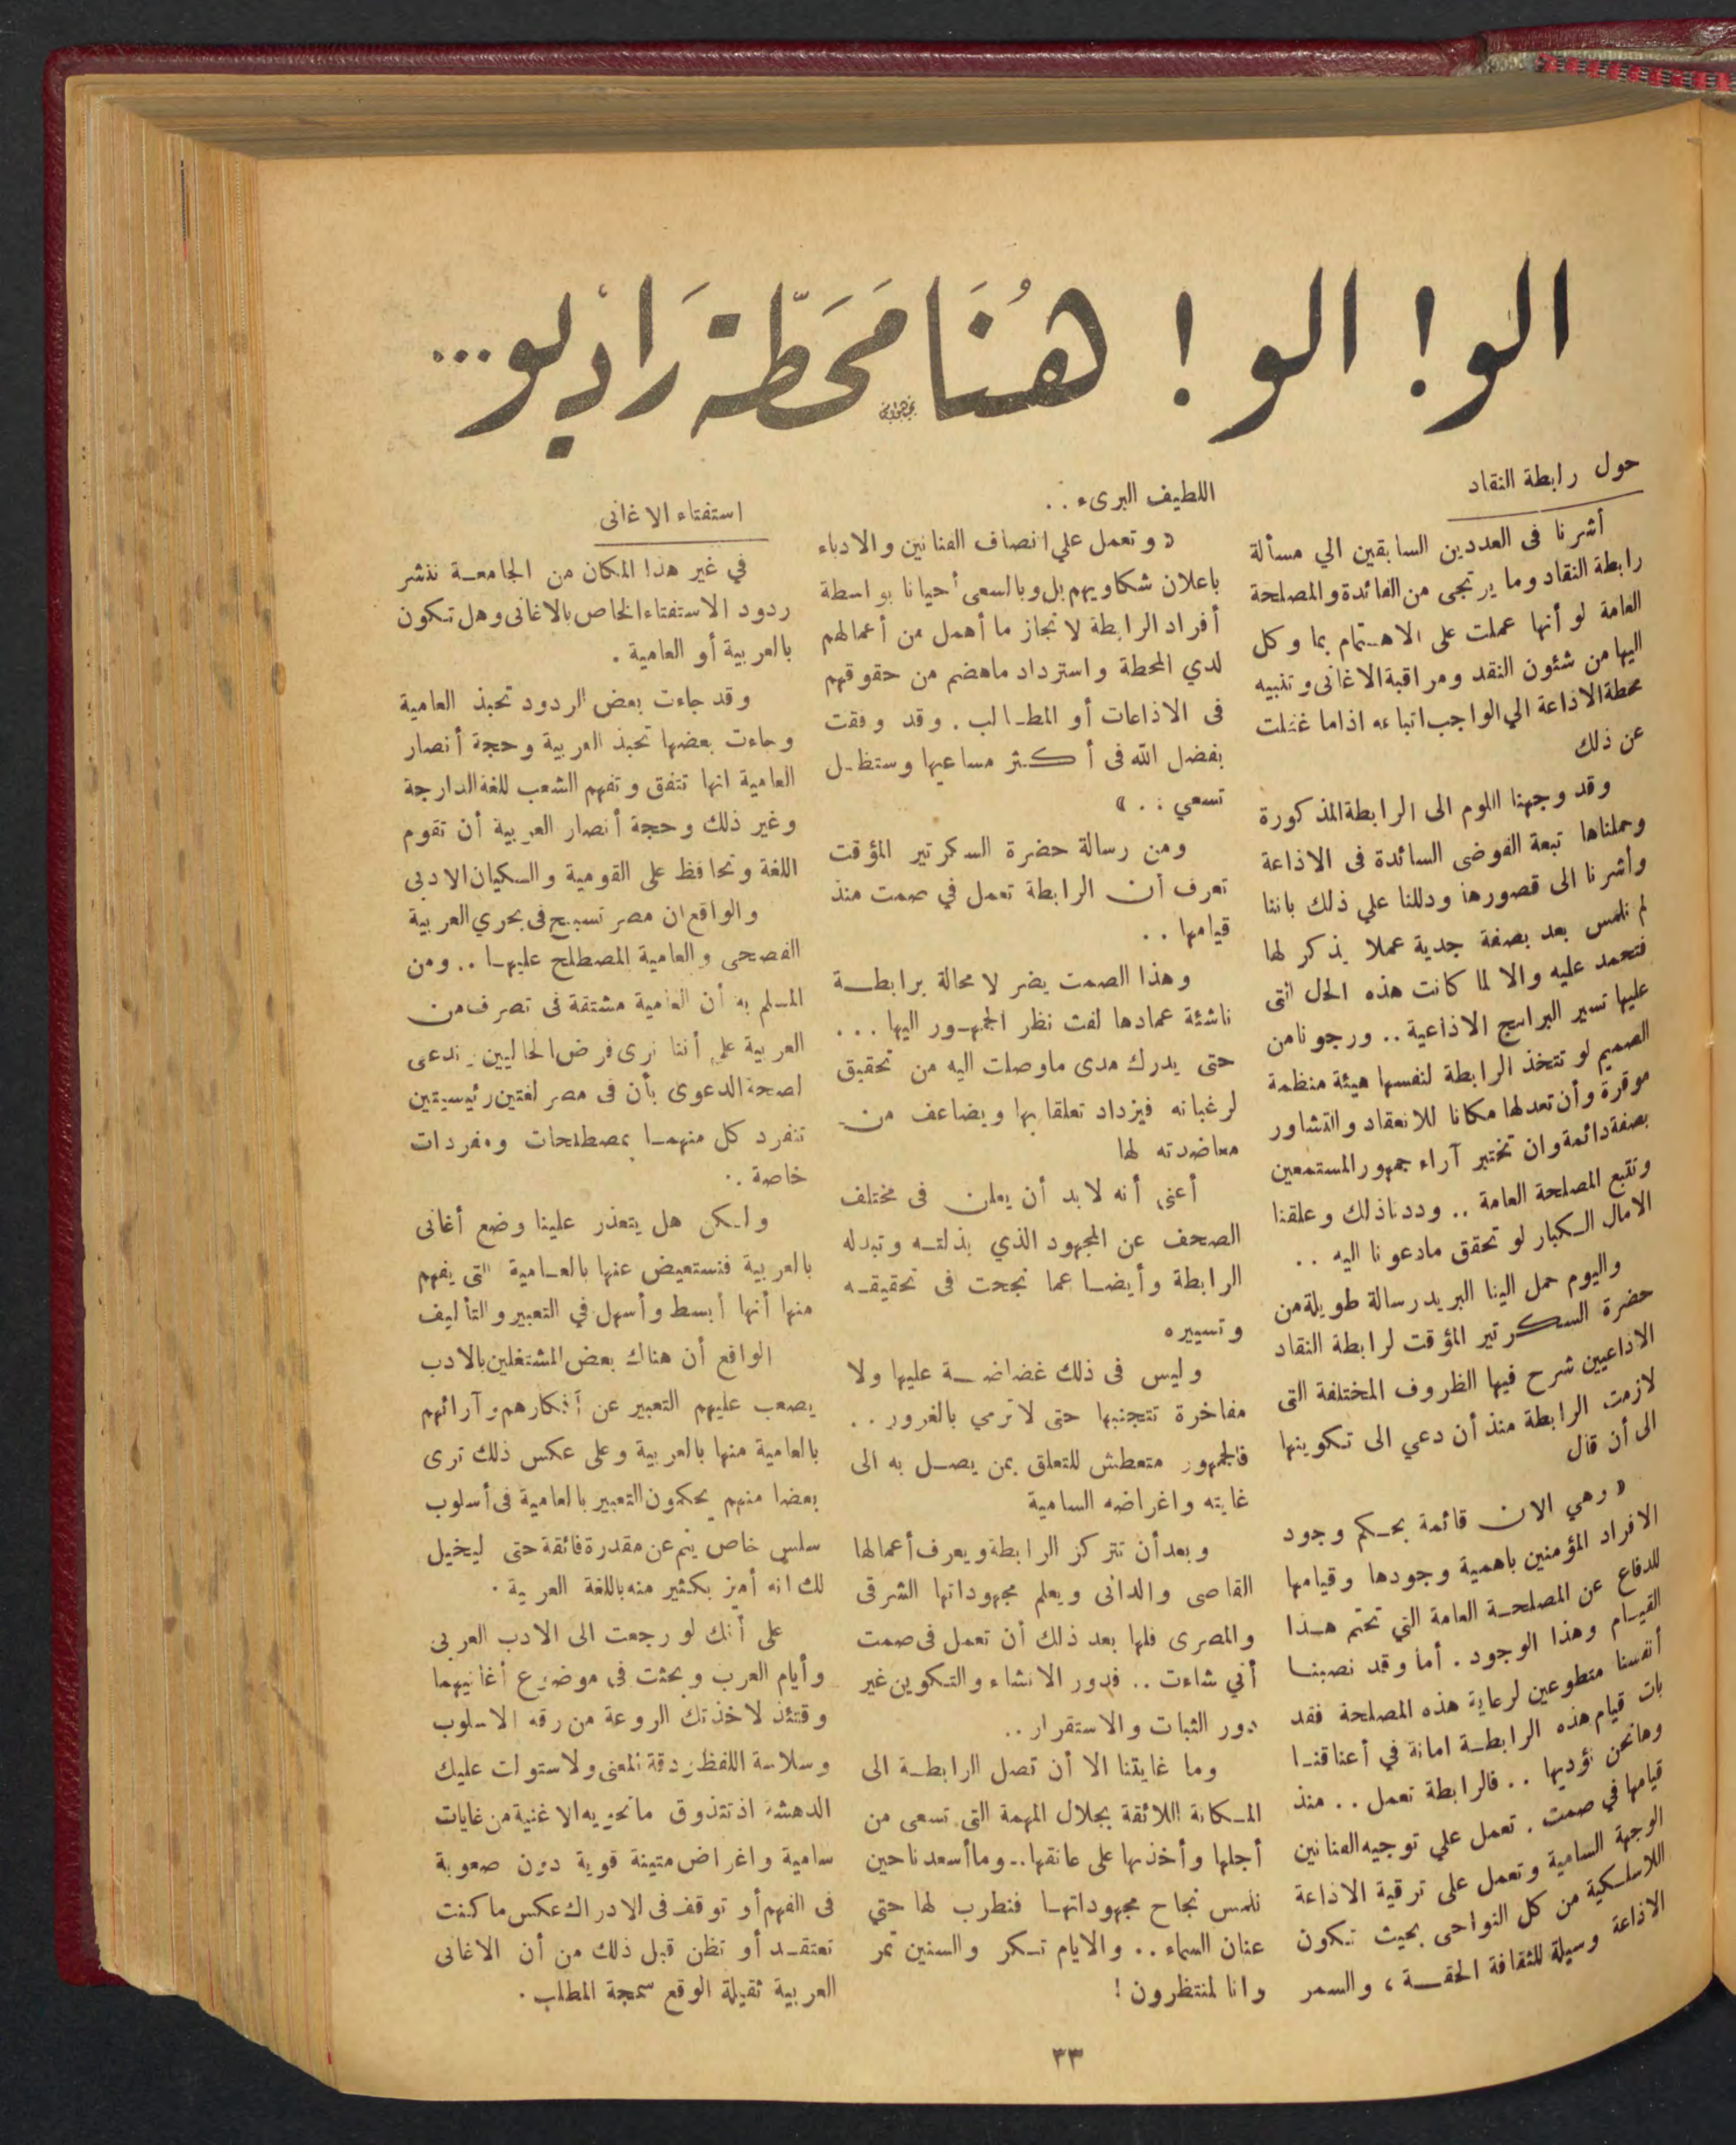 الو! الو! هُنَا مَحَطّة رَاديو...
حول رابطة النقاد
أشرنا فى العددين السابقين الي مسألة
رابطة النقاد وما يرتجى من الفائدة والمصلحة
العامة لو أنها عملت على الاهتمام بما وكل
اليها من شئون النقد ومراقبة الاغانى وتنبيه
محطة الاذاعة الي الواجب اتباعه اذا ما غفلت
عن ذلك
وقد وجهنا اللوم الى الرابطة المذكورة
وحملناها تبعة الفوضى السائدة فى الاذاعة
وأشرنا الى قصورها ودللنا علي ذلك باننا
لم نلمس بعد بصفة جدية عملا يذكر لها
فتحمد عليه والا لما كانت هذه الحال التى
عليها تسير البرامج الاذاعية .. ورجونا من
الصميم لو تتخذ الرابطة لنفسها هيئة منظمة
موقرة وأن تعد لها مكانا للانعقاد والتشاور
بصفة دائمة وان تختبر آراء جمهور المستمعين
وتتبع المصلحة العامة .. وددنا ذلك وعلقنا
الامال الكبار لو تحقق مادعونا اليه ..
واليوم حمل الينا البريد رسالة طويلة من
حضرة السكرتير المؤقت لرابطة النقاد
الاذاعيين شرح فيها الظروف المختلفة التى
لازمت الرابطة منذ أن دعي الى تكوينها
الى أن قال
« وهي الان قائمة بحكم وجود
الافراد المؤمنين باهمية وجودها وقيامها
للدفاع عن المصلحة العامة التي تحتم هذا
القيام وهذا الوجود . أما وقد نصبنا
أنفسنا متطوعين لرعاية هذه المصلحة فقد
بات قيام هذه الرابطة امانة في أعناقنا
وها نحن نؤديها .. فالرابطة تعمل .. منذ
قيامها في صمت . تعمل علي توجيه الفنانين
الوجهة السامية وتعمل على ترقية الاذاعة
اللاسلكية من كل النواحى بحيث تكون
الاذاعة وسيلة للثقافة الحقة ، والسمر
اللطيف البرىء ..
« وتعمل علي انصاف الفنانين والادباء
باعلان شكاويهم بل وبالسعى أحيانا بواسطة
أفراد الرابطة لانجاز ما أهمل من أعمالهم
لدي المحطة واسترداد ماهضم من حقوقهم
فى الاذاعات أو المطالب . وقد وفقت
بفضل الله فى أكثر مساعيها وستظل
تسعي .. »
ومن رسالة حضرة السكرتير المؤقت
تعرف أن الرابطة تعمل في صمت منذ
قيامها ..
وهذا الصمت يضر لا محالة برابطة
ناشئة عمادها لفت نظر الجمهور اليها ...
حتى يدرك مدى ماوصلت اليه من تحقيق
لرغباته فيزداد تعلقا بها ويضاعف من
معاضدته لها
أعنى أنه لابد أن يعلن فى مختلف
الصحف عن المجهود الذي بذلته وتبذله
الرابطة وأيضا عما نجحت فى تحقيقه
وتسييره
وليس فى ذلك غضاضة عليها ولا
مفاخرة تتجنبها حتى لا ترمي بالغرور ..
فالجمهور متعطش للتعلق بمن يصل به الى
غايته واغراضه السامية
وبعد أن تتركز الرابطة ويعرف أعمالها
القاصى والدانى ويعلم مجهوداتها الشرقى
والمصرى فلها بعد ذلك أن تعمل فى صمت
أني شاءت .. فدور الانشاء والتكوين غير
دور الثبات والاستقرار ..
وما غايتنا الا أن تصل الرابطة الى
المكانة اللائقة بجلال المهمة التى تسعى من
أجلها وأخذها على عاتقها .. وما أسعدنا حين
نلمس نجاح مجهوداتها فنطرب لها حتي
عنان السماء .. والايام تكر والسنين تمر
وانا لمنتظرون !
استفتاء الاغانى
في غير هذا المكان من الجامعة ننشر
ردود الاستفتاء الخاص بالاغانى وهل تكون
بالعربية أو العامية .
وقد جاءت بعض الردود تحبذ العامية
وجاءت بعضها تحبذ العربية وحجة أنصار
العامية انها تتفق وتفهم الشعب للغة الدارجة
وغير ذلك وحجة أنصار العربية أن تقوم
اللغة وتحافظ على القومية والكيان الادبى
والواقع ان مصر تسبح فى بحري العربية
الفصحى والعامية المصطلح عليها .. ومن
المسلم به أن العامية مشتقة فى تصرف من
العربية على أننا نرى فرض الحاليين ندعى
لصحة الدعوى بأن فى مصر لغتين رئيسيتين
تنفرد كل منهما بمصطلحات ومفردات
خاصة .
ولكن هل يتعذر علينا وضع أغانى
بالعربية فنستعيض عنها بالعامية التى يفهم
منها أنها أبسط وأسهل في التعبير والتأليف
الواقع أن هناك بعض المشتغلين بالادب
يصعب عليهم التعبير عن أفكارهم وآرائهم
بالعامية منها بالعربية وعلى عكس ذلك ترى
بعضا منهم يحكمون التعبير بالعامية فى أسلوب
سلس خاص ينم عن مقدرة فائقة حتى ليخيل
لك انه أميز بكثير منه باللغة العربية .
على أنك لو رجعت الى الادب العربى
وأيام العرب وبحثت فى موضوع أغانيهما
وقتئذ لاخذتك الروعة من رقه الاسلوب
وسلاسة اللفظ ودقة المعنى ولاستولت عليك
الدهشة اذ تتذوق ماتحويه الاغنية من غايات
سامية واغراض متينة قوية دون صعوبة
فى الفهم أو توقف فى الادراك عكس ما كنت
تعتقد أو تظن قبل ذلك من أن الاغانى
العربية ثقيلة الوقع سمجة المطلب .
٣٣